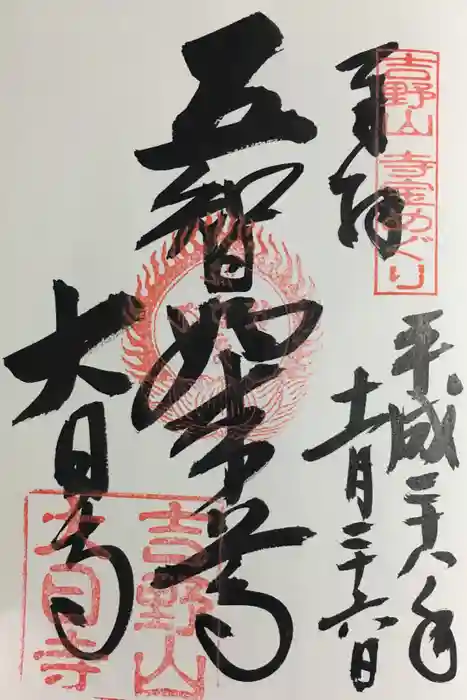 吉野山 寺宝めぐり
奉拝
平成二十八年
十一月二十六日
五智如来等
大日寺
吉野山
大日寺